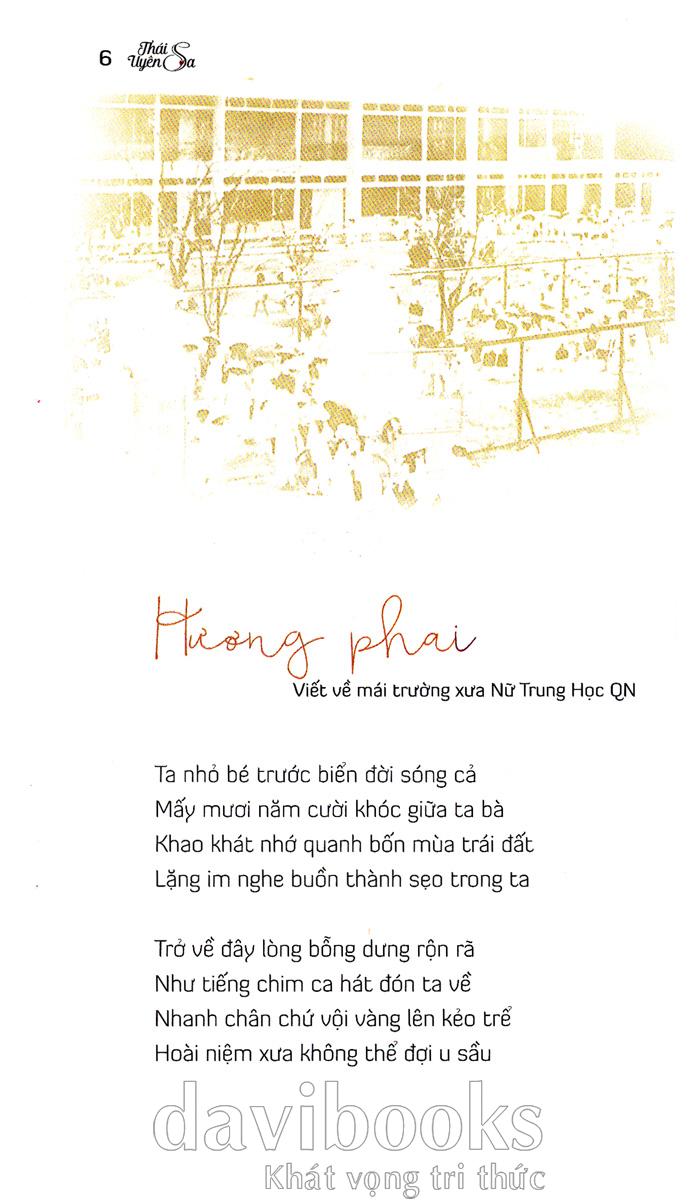 6
Thái
Uyên Sa
Hương phai
Viết về mái trường xưa Nữ Trung Học QN
Ta nhỏ bé trước biển đời sóng cả
Mấy mươi năm cười khóc giữa ta bà
Khao khát nhớ quanh bốn mùa trái đất
Lặng im nghe buồn thành sẹo trong ta
Trở về đây lòng bỗng dưng rộn rã
Như tiếng chim ca hát đón ta về
Nhanh chân chứ vội vàng lên kẻo trể
Hoài niệm xưa không thể đợi u sầu
davibooks
Khát vọng tri thức